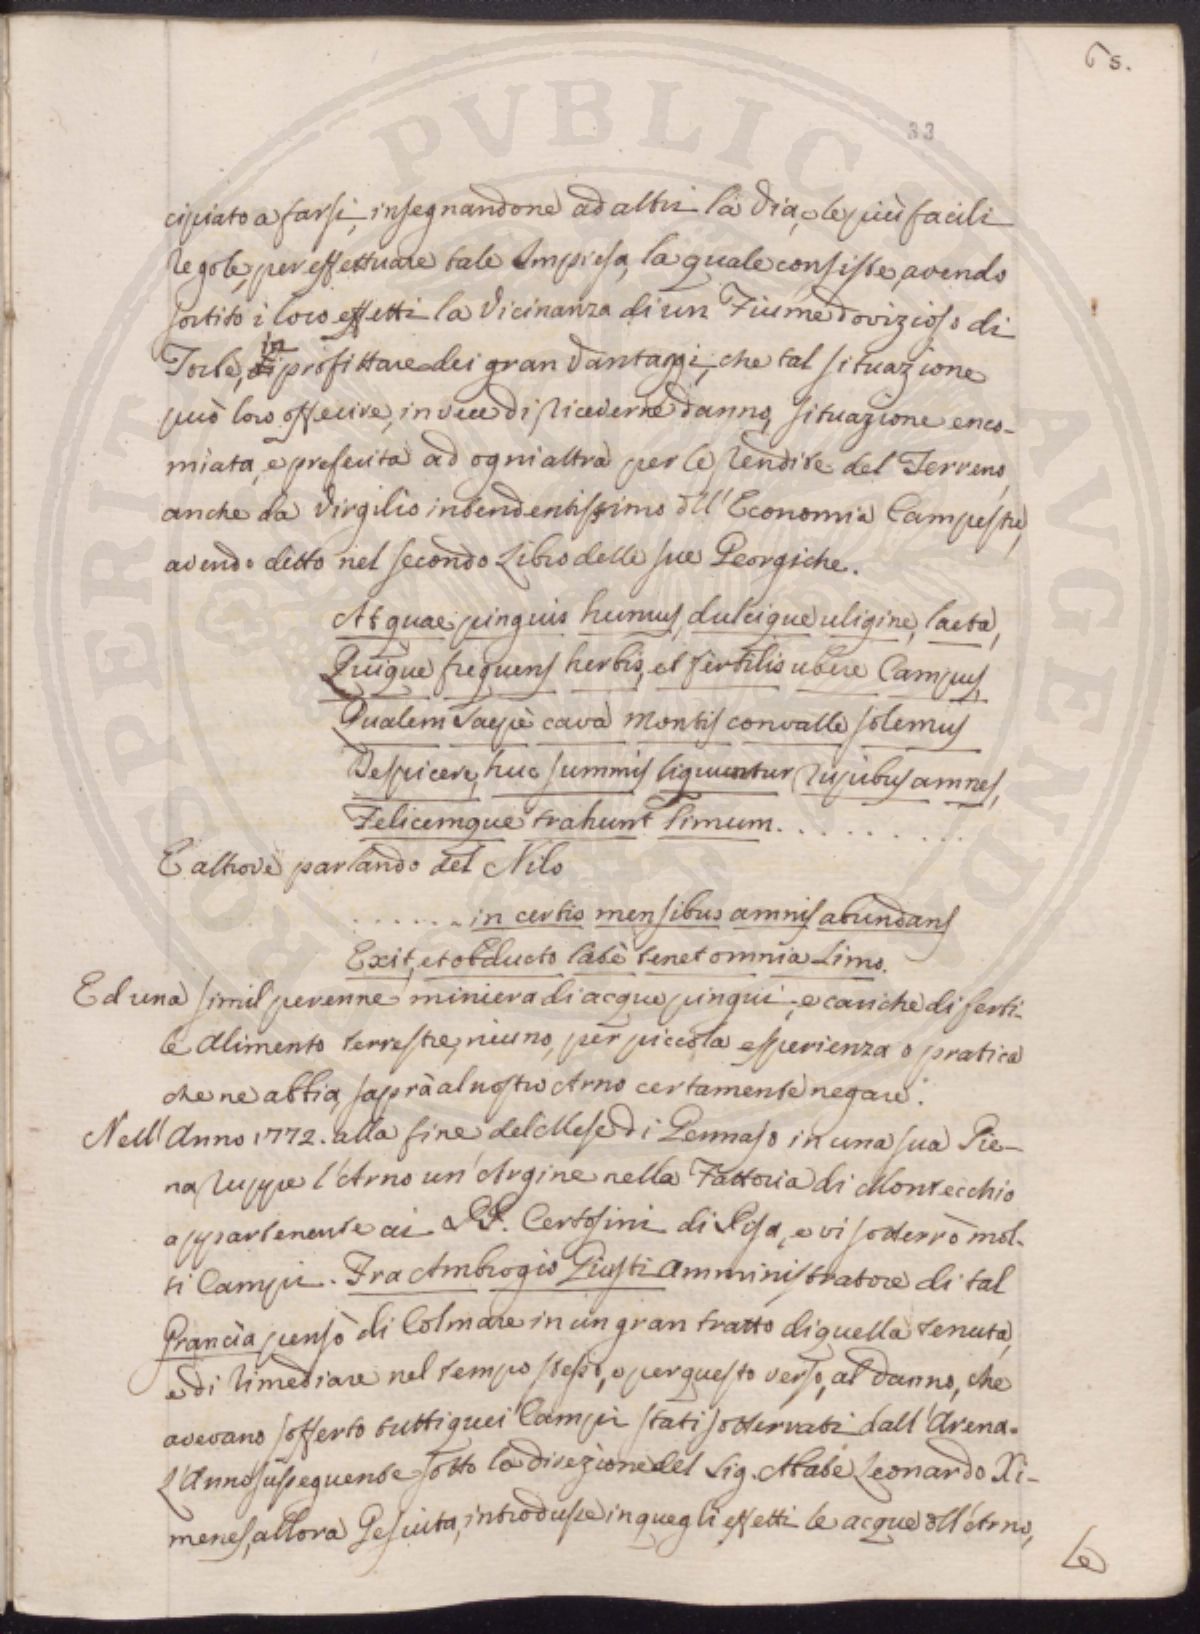 65.
33
cipiato a farsi, insegnandone ad altri la via, e le più facili
regole, per effettuare tale Impresa, la quale consiste, avendo
sortito i loro effetti la Vicinanza di un Fiume dovizioso di
in
Torbe, di profittare dei gran vantaggi, che tal situazione
può loro offerire, in vece di riceverne danno, situazione enco-
miata, e preferita ad ogni altra per le rendite del Terreno,
anche da Virgilio intendentissimo dell' Economia Campestre,
avendo detto nel secondo Libro delle sue Georgiche.
At quae pinguis humus, dulcique uligine, laeta,
Quique frequens herbis, et fertilis ubere Campus,
Qualem saepè cava montis convalle solemus
Despicere, huc summis liquuntur rupibus amnes,
Felicemque trahunt Limum..........
E altrove parlando del Nilo
....... in certis mensibus amnis abundans
Exit, et obducto latè tenet omnia Limo.
Ed una simil perenne miniera di acque pingui, e cariche di ferti-
le Alimento terrestre, niuno, per piccola esperienza o pratica
che ne abbia, saprà al nostro Arno certamente negare.
Nell' Anno 1772. alla fine del Mese di Gennajo in una sua Pie-
na ruppe l'Arno un' Argine nella Fattoria di Montecchio
appartenente ai PP. Certosini di Pisa, e vi sotterrò mol-
ti Campi. Fra Ambrogio Giusti Amministratore di tal
Grancia pensò di Colmare in un gran tratto di quella tenuta,
e di rimediare nel tempo stesso, e per questo verso, al danno, che
avevano sofferto tutti quei Campi stati sotterrati dall' Arena.
L'Anno susseguente sotto la direzione del Sig. Abate Leonardo Xi-
menes, allora Gesuita, introdusse in quegli effetti le acque dell' Arno,
le
PVBLIC
AVGENDA
PROSPERITA